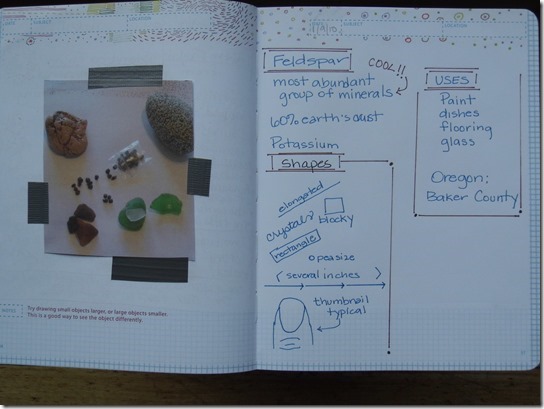 NOTES
Try drawing small objects larger, or large objects smaller.
This is a good way to see the object differently.
Feldspar
COOL!!
most abundant
group of minerals
60% earth's crust
Potassium
Shapes
elongated
crystals
blocky
rectangle
pea size
several inches
thumbnail
typical
USES
Paint
dishes
flooring
glass
Oregon:
Baker County